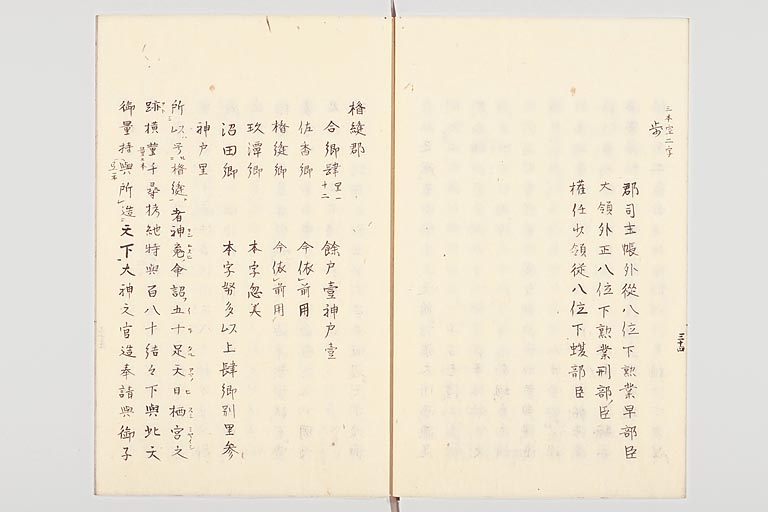 三本空二字
步
郡司主帳外從八位下勲業早部臣
大領外正八位下勲業刑部臣
權任少領從八位下蝮部臣
三十四
楯縫郡
合郷肆 里一十二 餘戸壹神戸壹
佐香郷 今依前用
楯縫郷 今依前用
玖潭郷 本字忽美
沼田郷 本字努多以上肆郷別里参
神戸里
所以号楯縫者神魂命詔五十足天日栖宮之
跡横豊千尋栲紲持與百八十結々下與此天
御量持與所造天下大神之宮造奉請與御子